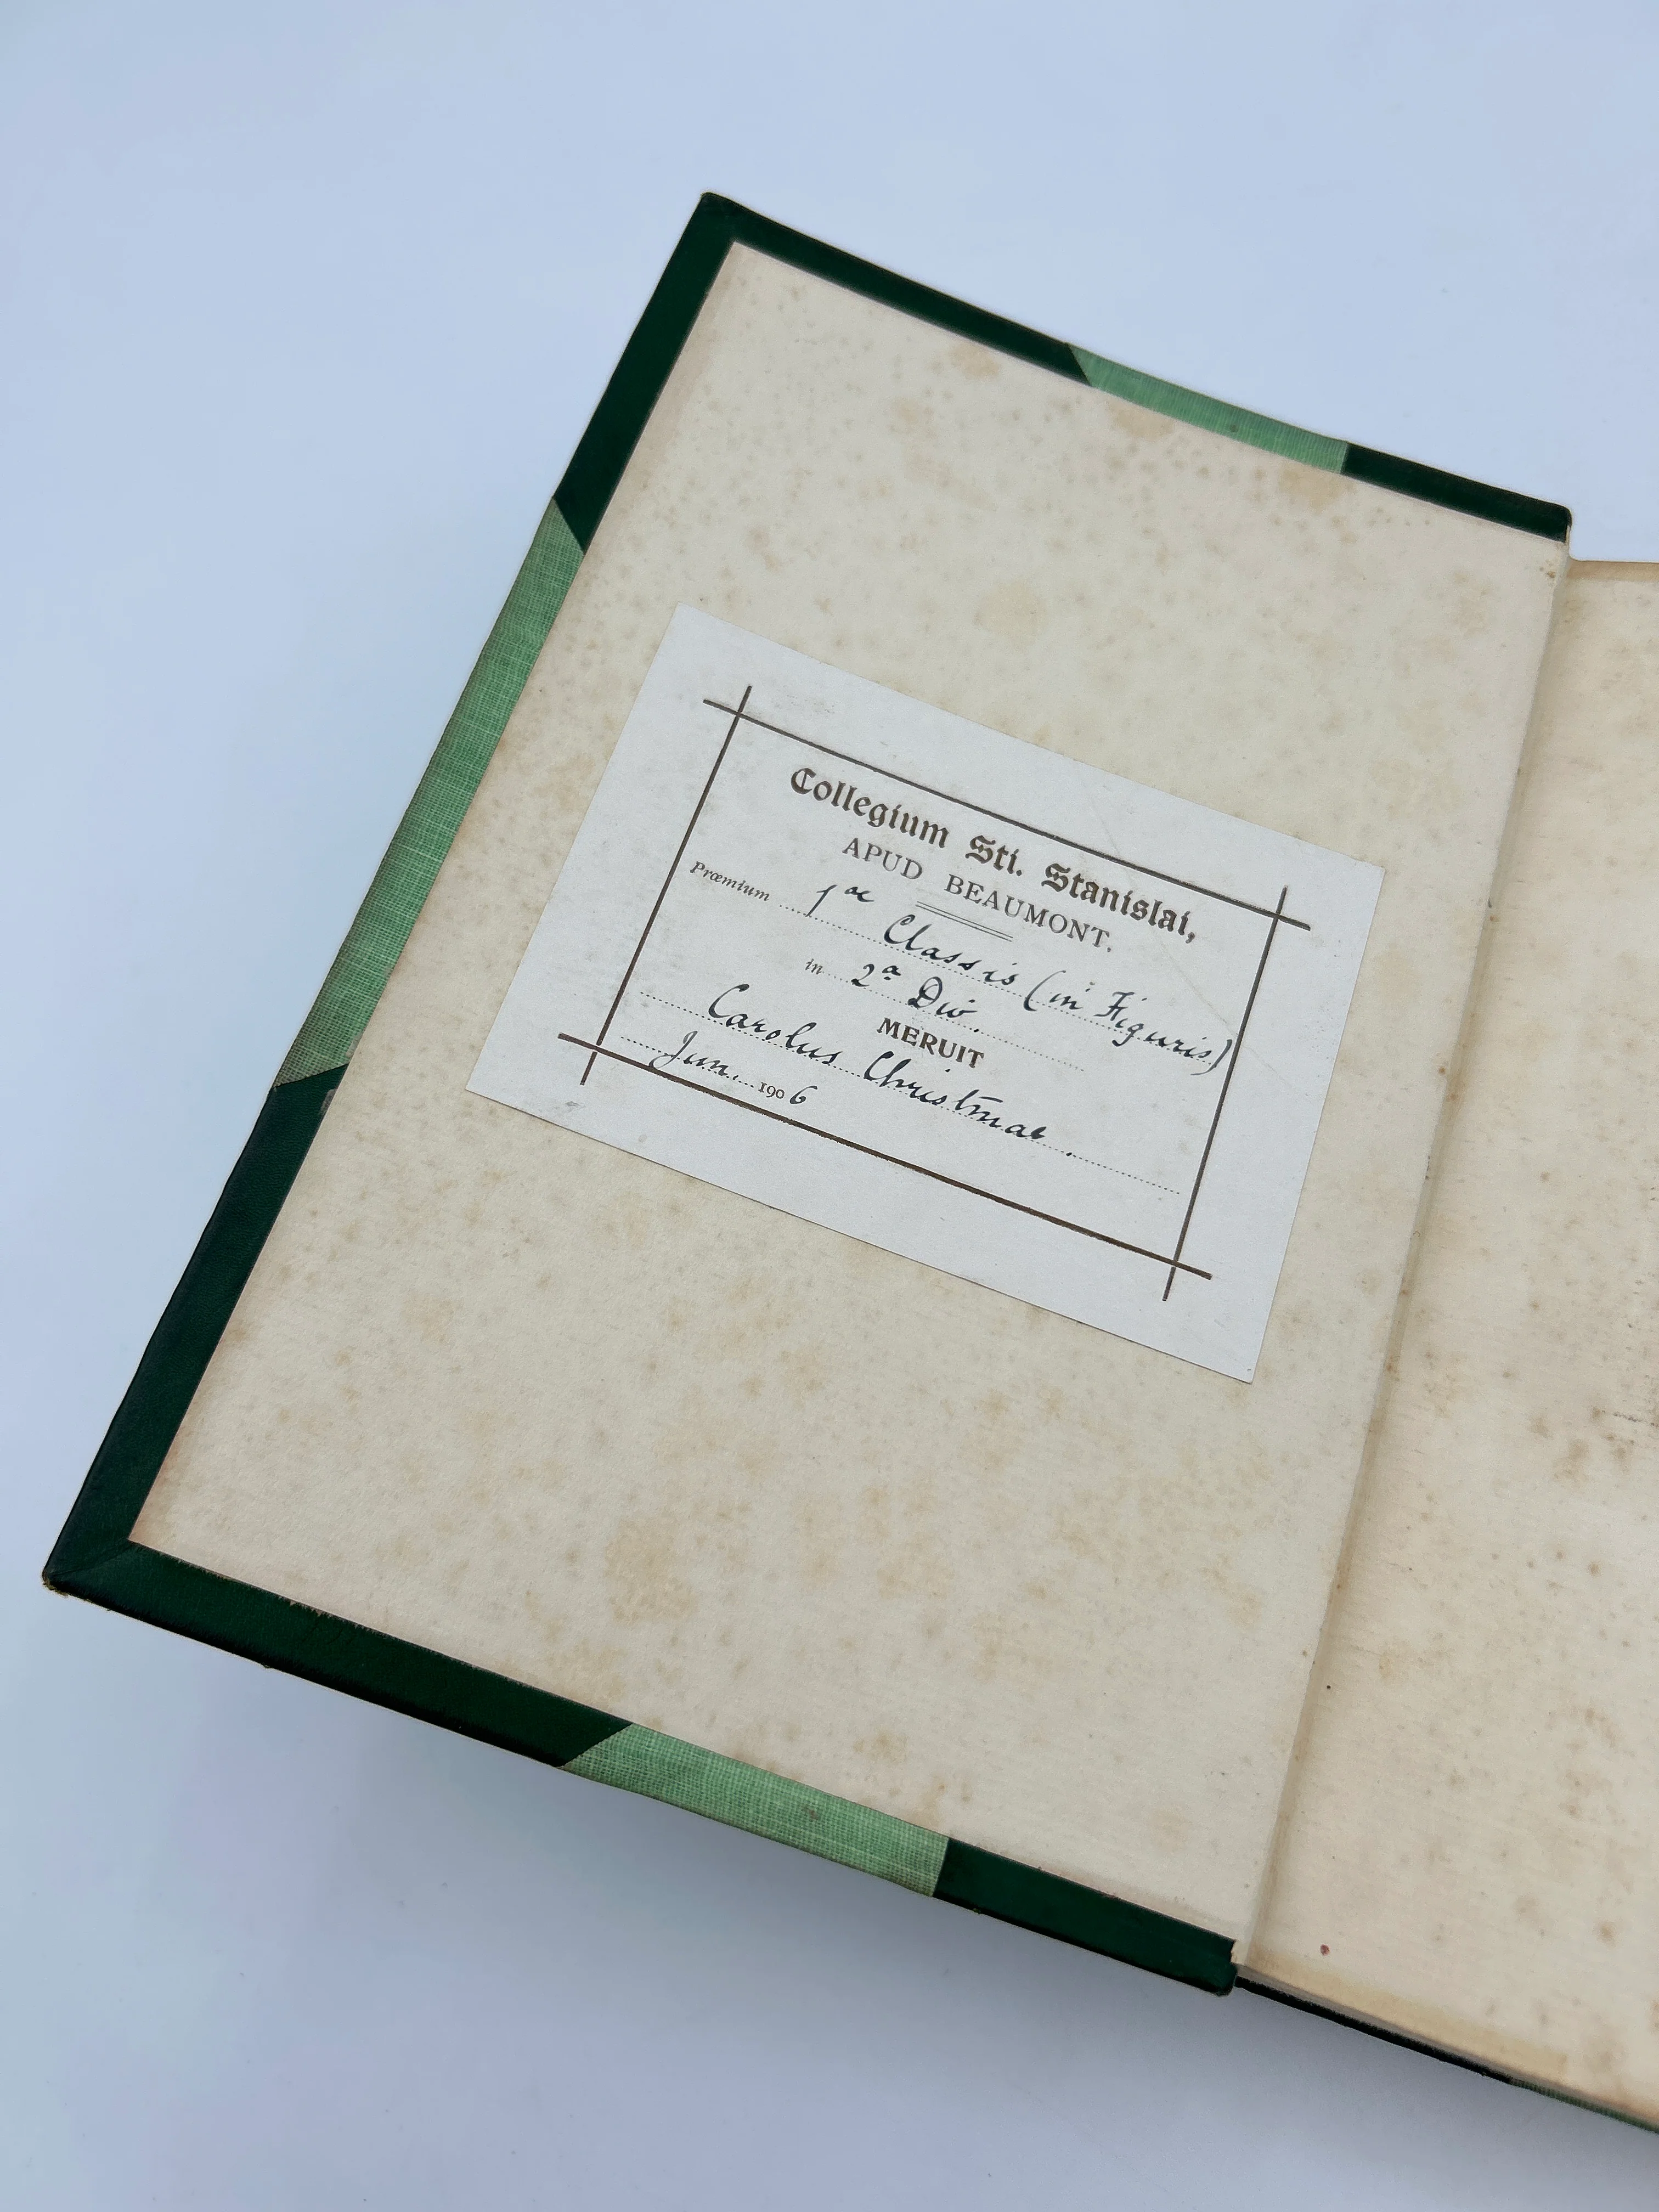 Collegium Sti. Stanislai,
APUD BEAUMONT.
Præmium 1ae Classis (in Figuris)
in 2a Div.
MERUIT
Carolus Christmas.
Jun. 1906